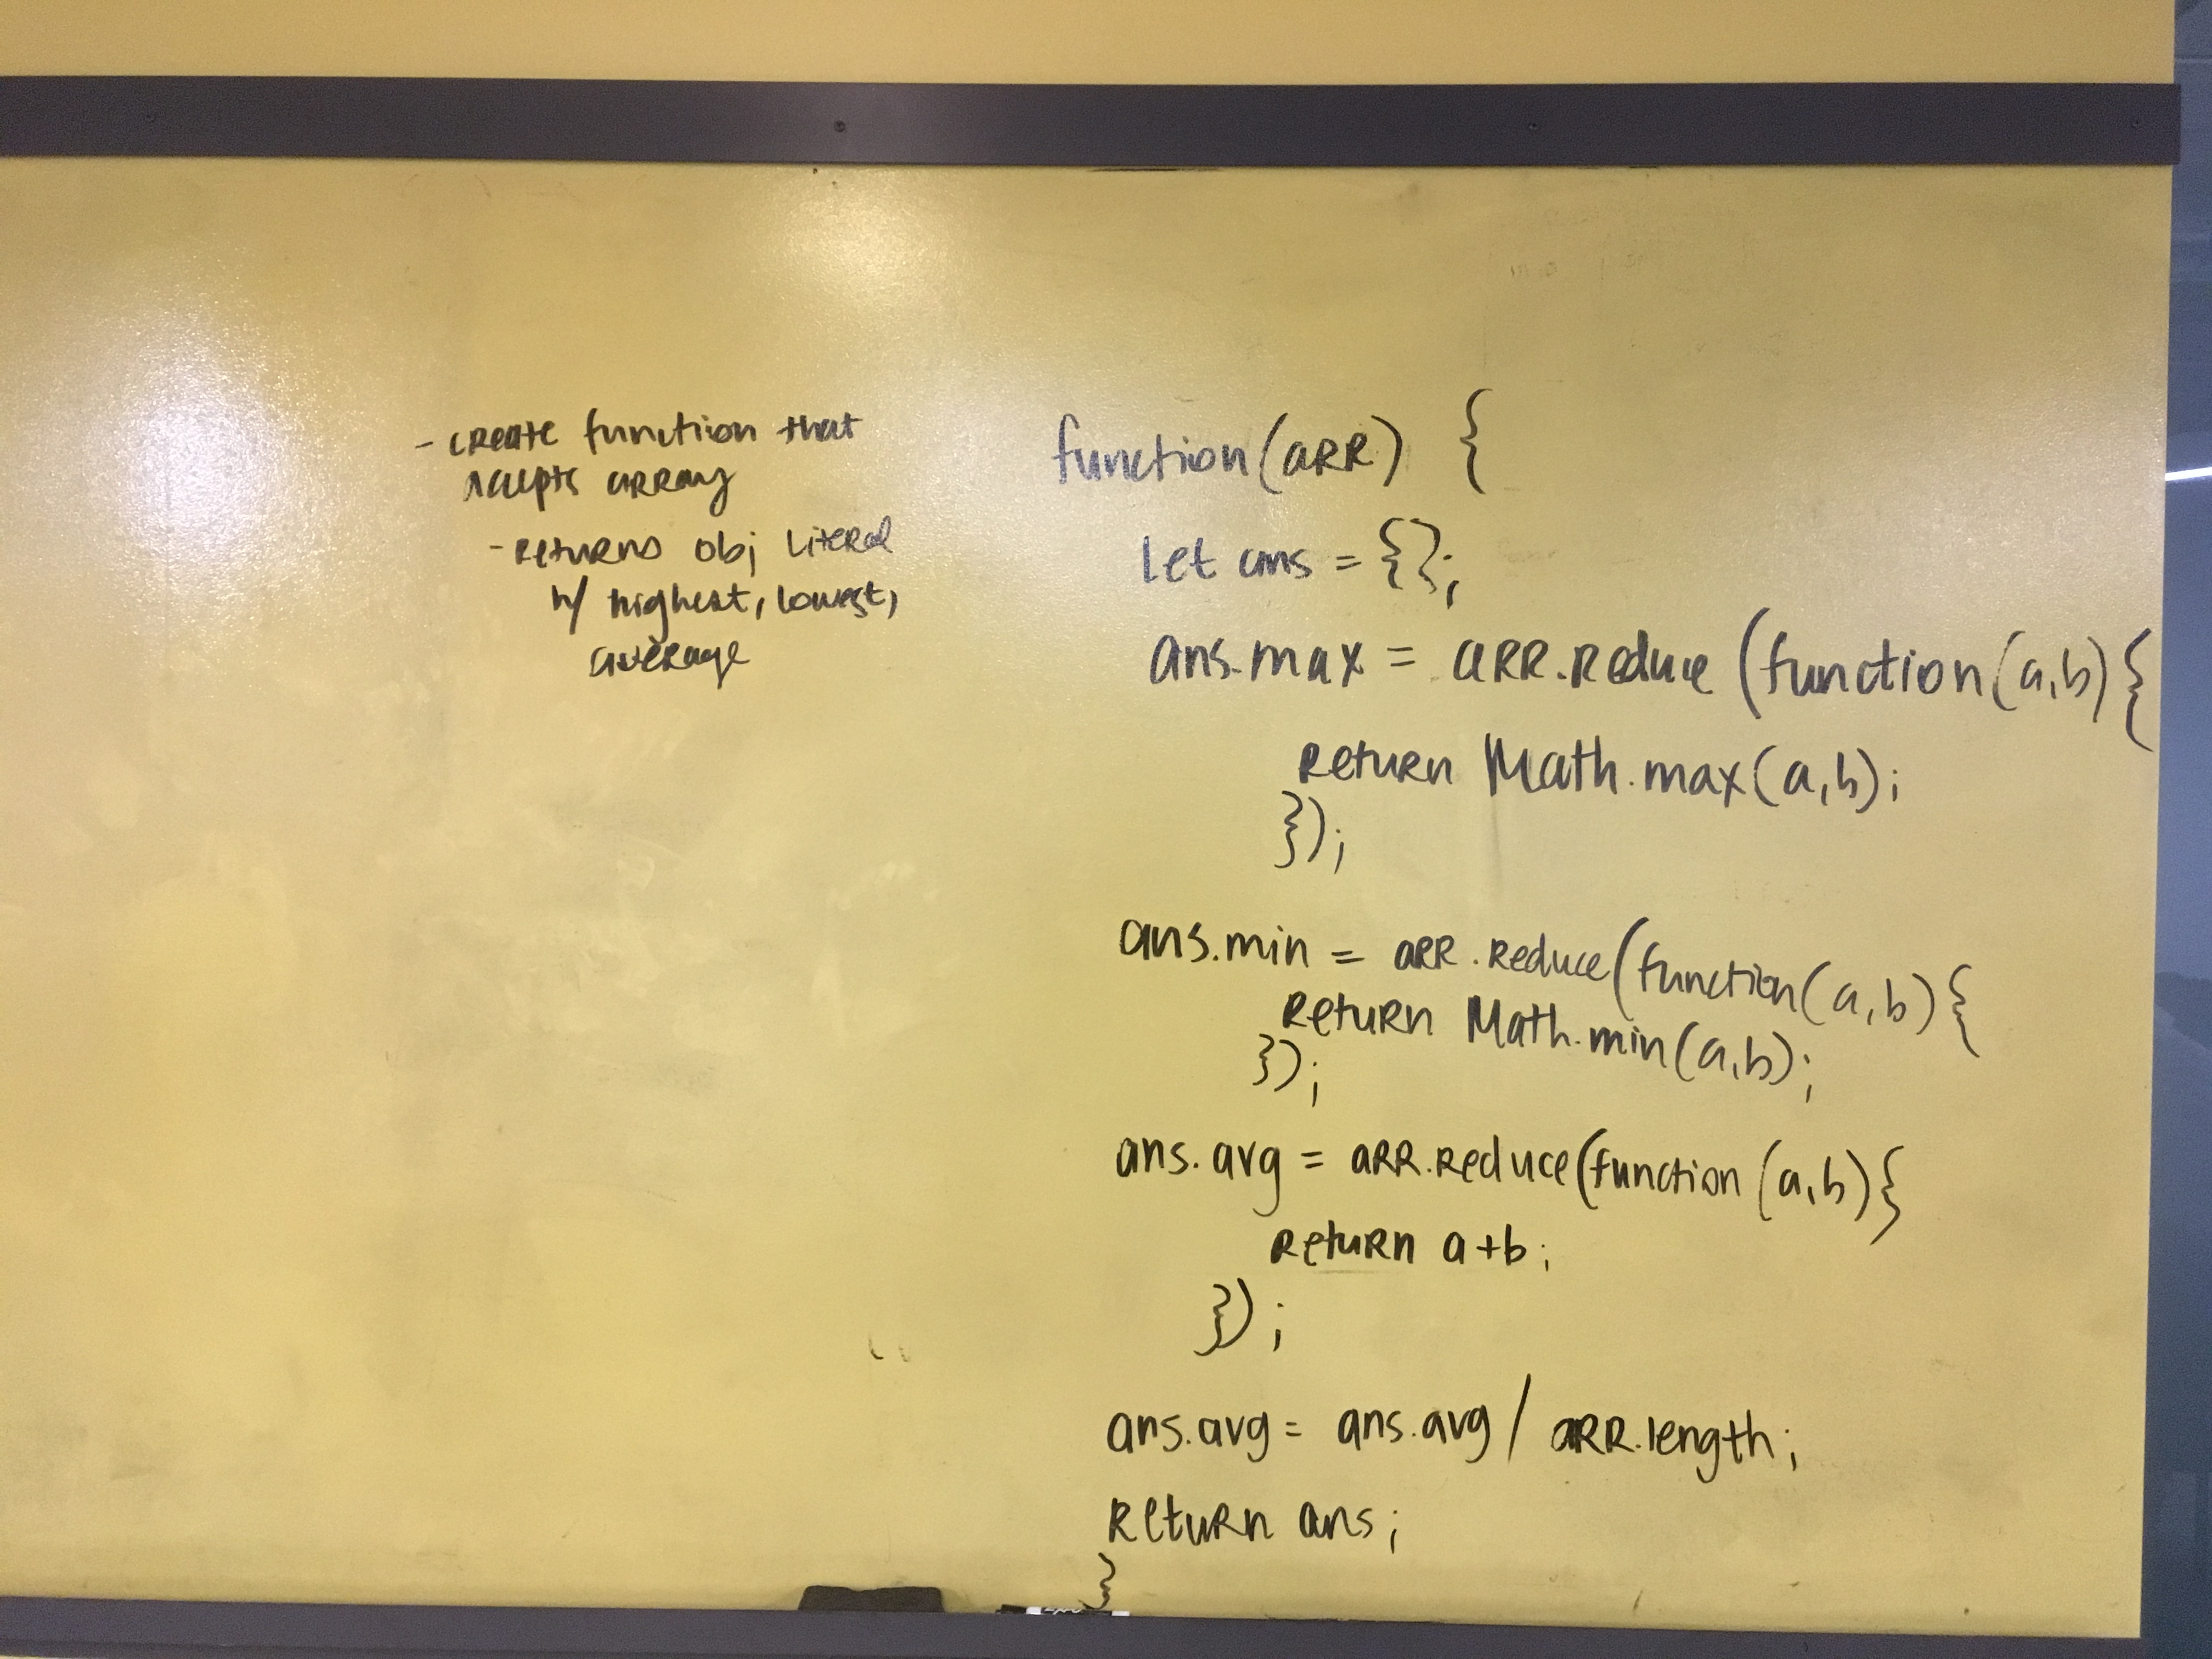 - create function that
accepts array
- returns obj literal
w/ highest, lowest,
average
function(arr) {
let ans = {};
ans.max = arr.reduce (function(a,b) {
return Math.max(a,b);
});
ans.min = arr.reduce(function(a,b) {
return Math.min(a,b);
});
ans.avg = arr.reduce(function (a,b) {
return a+b;
});
ans.avg = ans.avg / arr.length;
return ans;
}